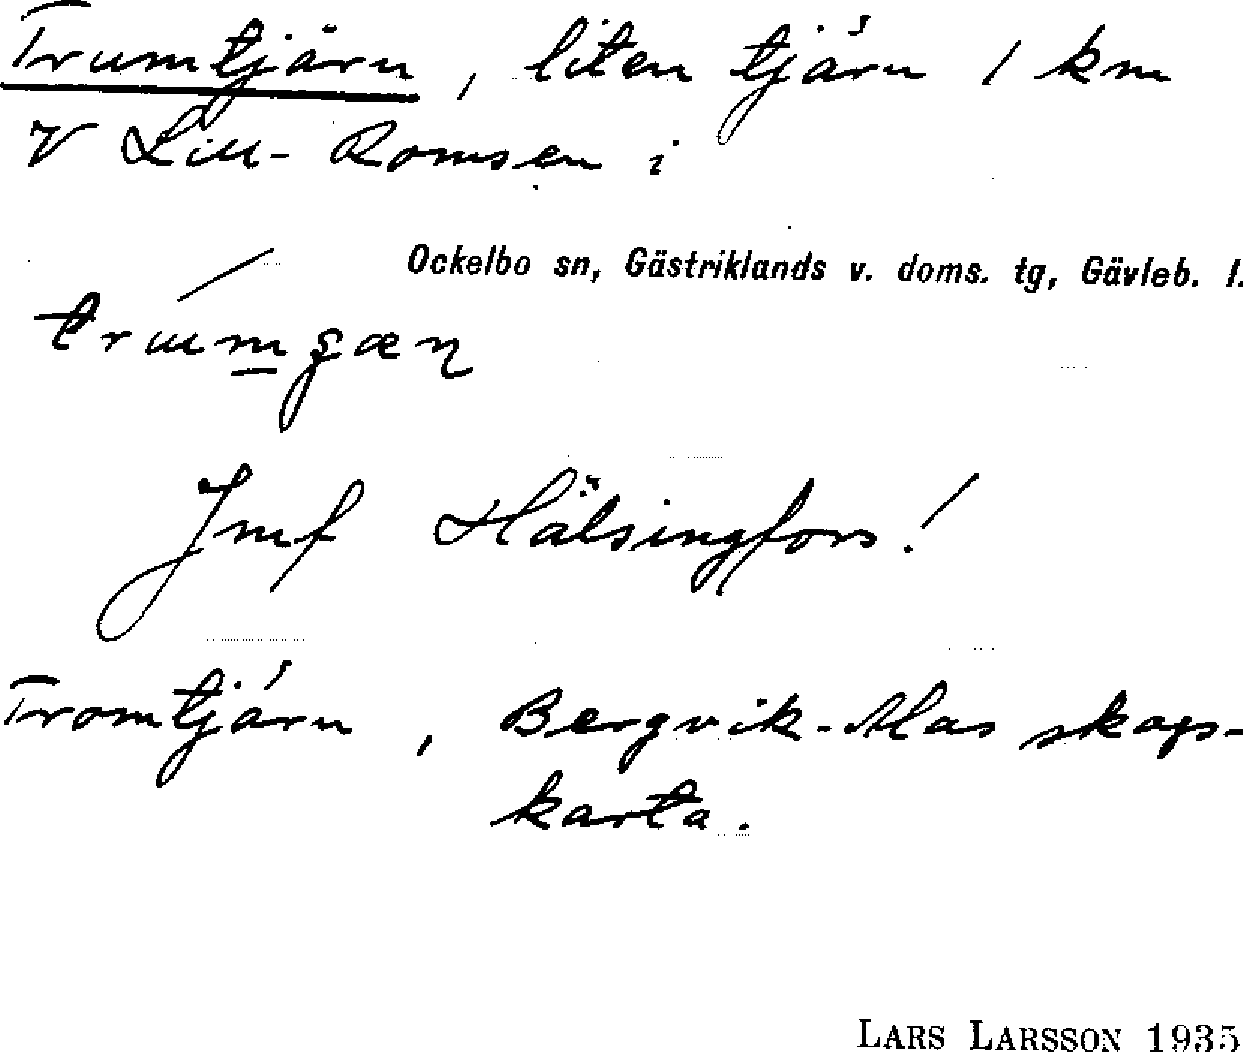 Trumtjärn, liten tjärn 1 km
V Lill-Romsen i
Ockelbo sn, Gästriklands v. doms. tg, Gävleb. l.
Jmf Hälsingfors!
Tromtjärn, Bergvik-Alas skogs-
karta.
LARS LARSSON 1935